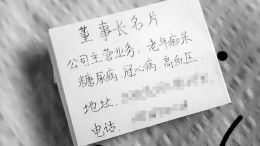 董事长名片
公司主营业务：老年痴呆
糖尿病.冠心病.高血压.
地址.
电话.